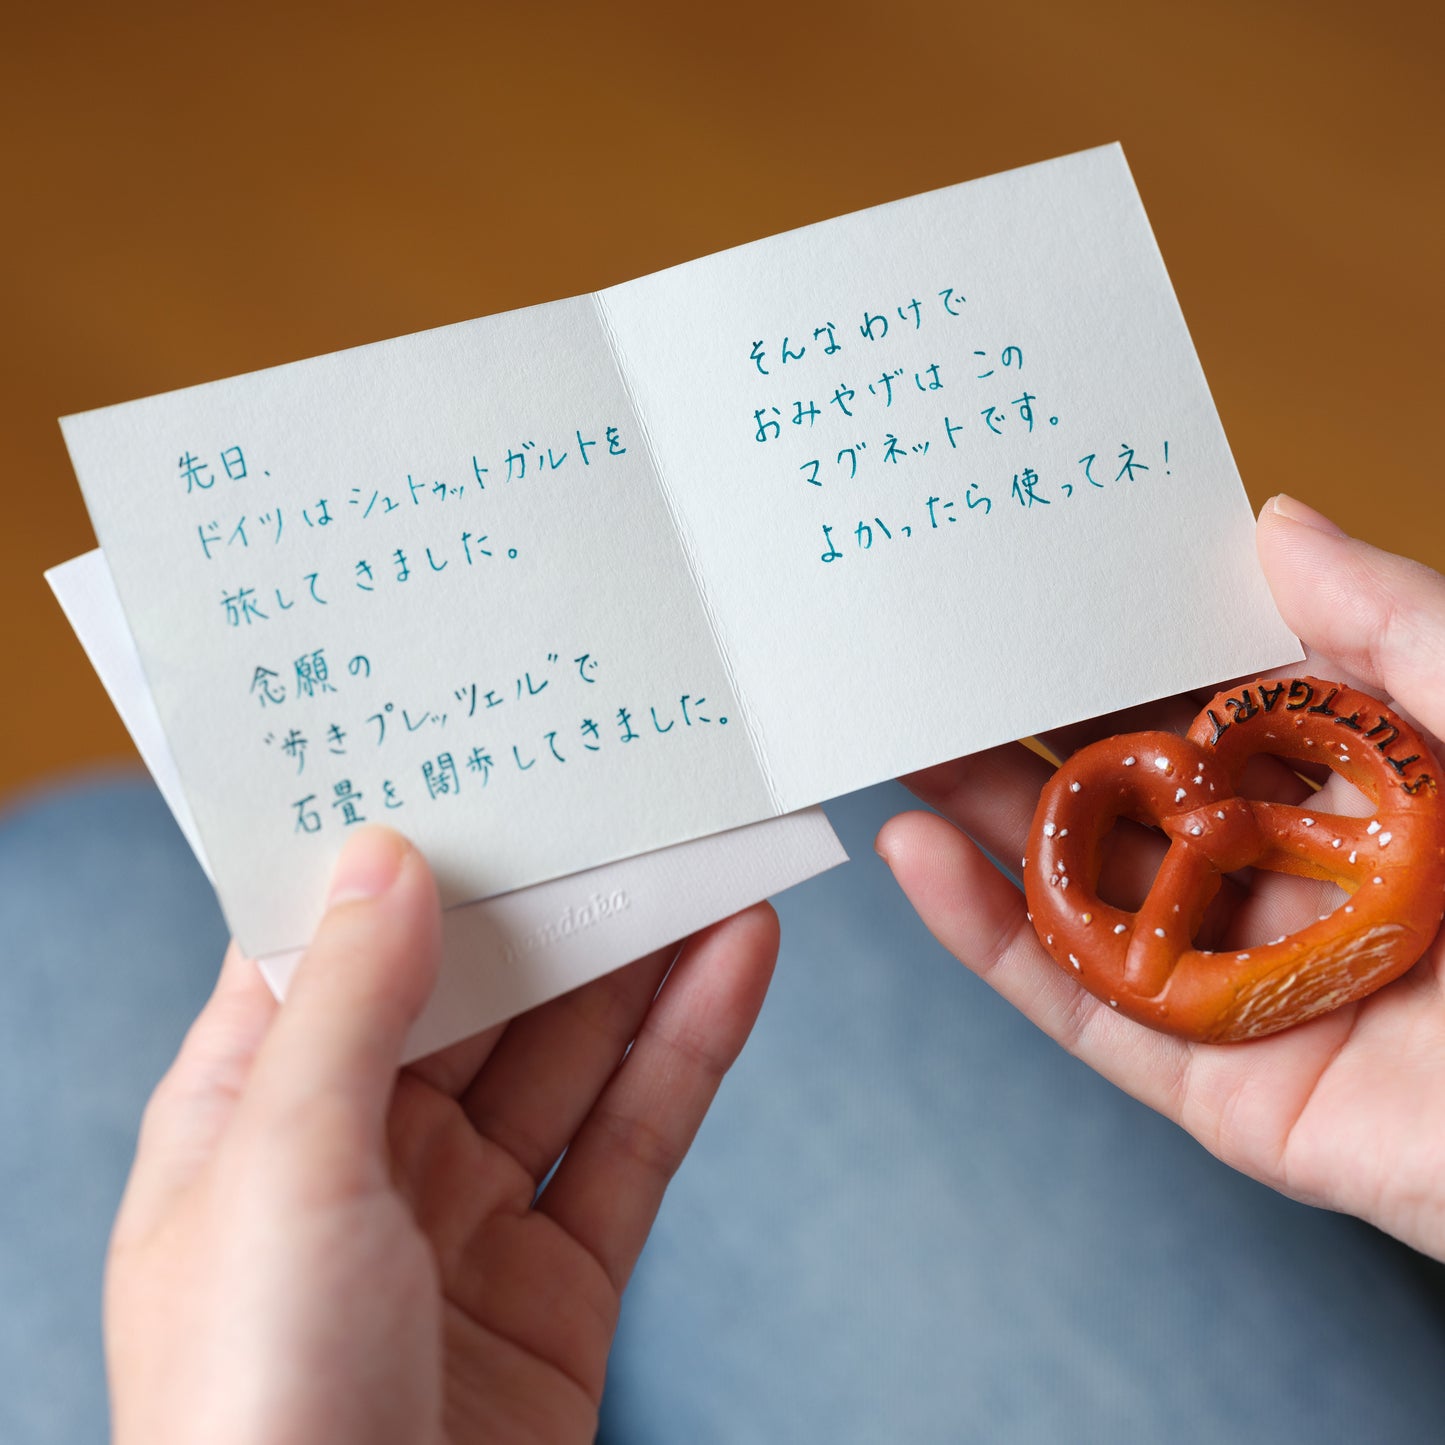 先日、
ドイツはシュトゥットガルトを
旅してきました。
念願の
“歩きプレッツェル”で
石畳を闊歩してきました。
そんなわけで
おみやげは この
マグネットです。
よかったら使ってネ！
STUTTGART